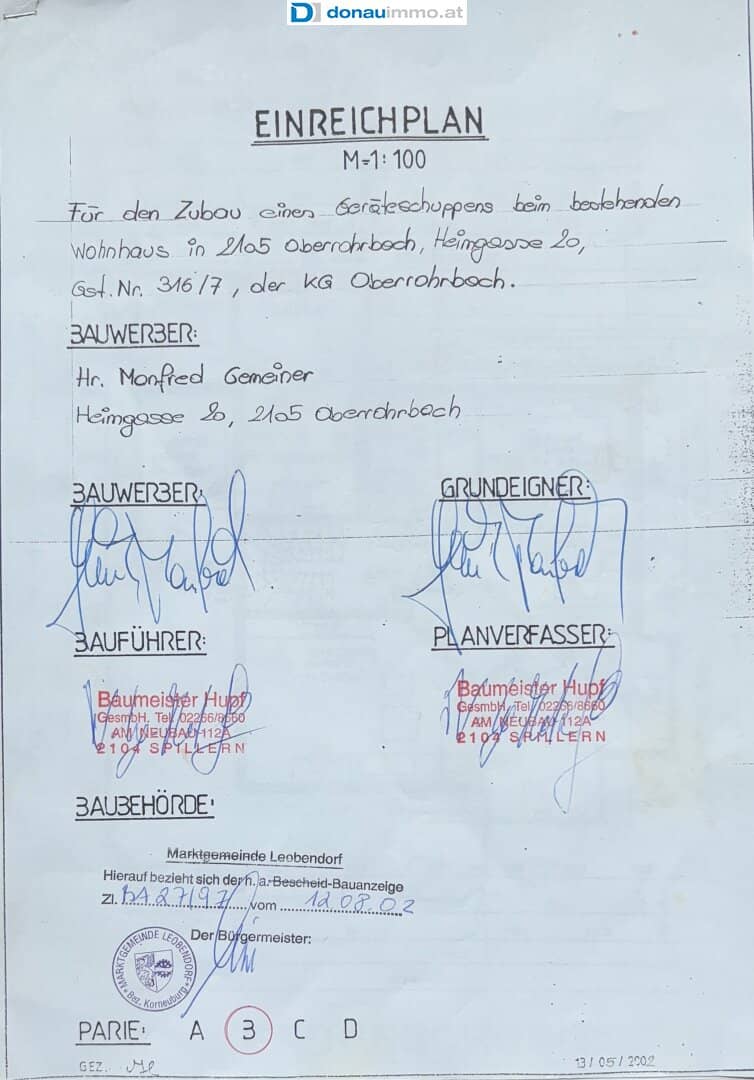 donauimmo.at
EINREICHPLAN
M=1:100
Für den Zubau eines Geräteschuppens beim bestehenden
Wohnhaus in 2105 Oberrohrbach, Heimgasse 20,
Gst. Nr. 316/7, der KG Oberrohrbach.
BAUWERBER:
Hr. Manfred Gemeiner
Heimgasse 20, 2105 Oberrohrbach
BAUWERBER: GRUNDEIGNER:
BAUFÜHRER: PLANVERFASSER:
Baumeister Hupf Baumeister Hupf
GesmbH. Tel. 02266/8660 GesmbH. Tel. 02266/8660
AM NEUBAU 112A AM NEUBAU 112A
2104 SPILLERN 2104 SPILLERN
BAUBEHÖRDE:
Marktgemeinde Leobendorf
Hierauf bezieht sich der h. a. Bescheid-Bauanzeige
Zl. BA 27/97 vom 12 08.02
Der Bürgermeister:
MARKTGEMEINDE LEOBENDORF
Bez. Korneuburg
PARIE: A B C D
GEZ. 13/05/2002